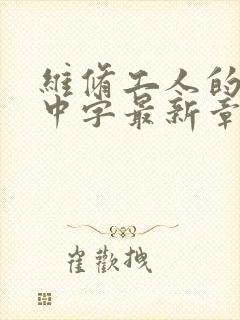 維脩工人的
中字最新章
崔歡拽